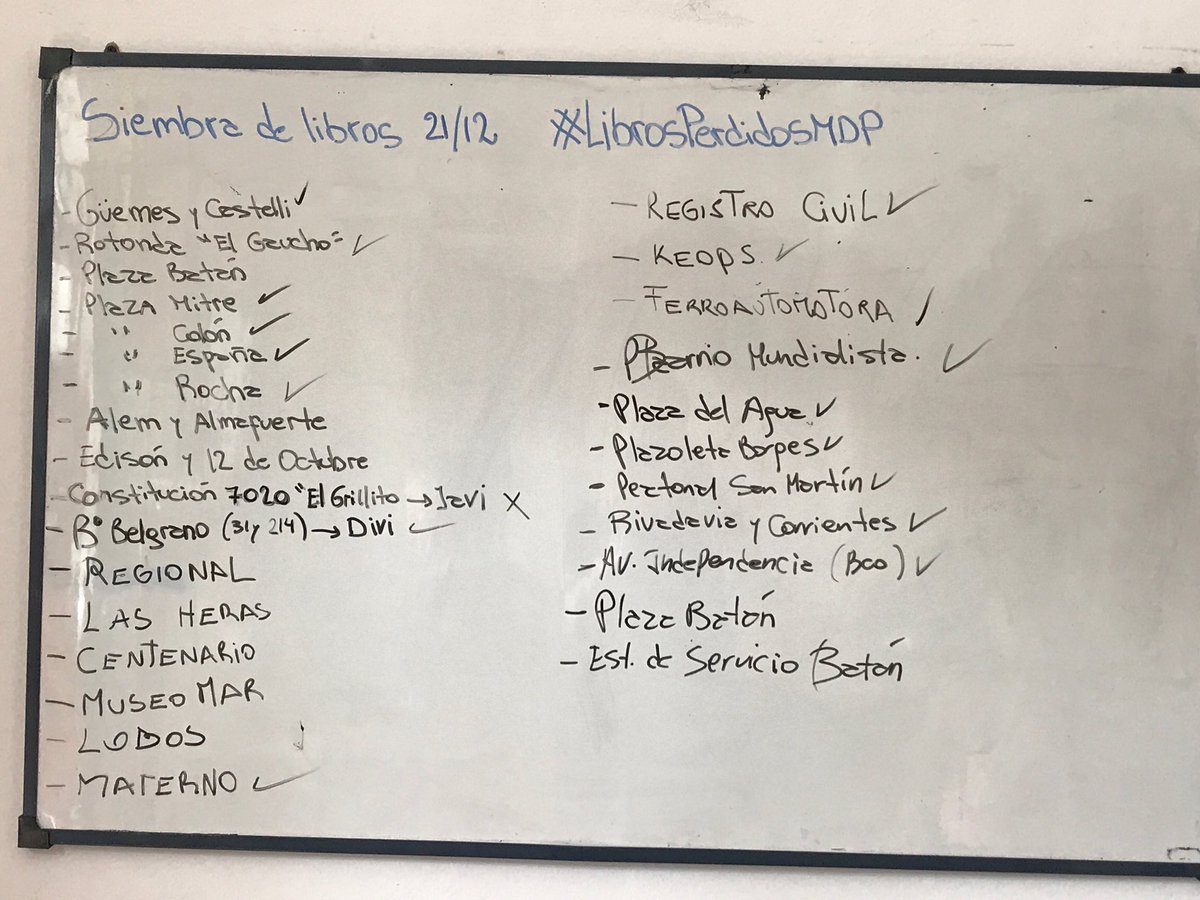 Siembra de libros 21/12 #LibrosPerdidosMDP
- Güemes y Castelli ✓
- Rotonda "El Gaucho" ✓
- Plaza Batán
- PLAZA Mitre ✓
- " Colón ✓
- " España ✓
- " Rocha ✓
- Alem y Almafuerte
- Edisón y 12 de Octubre
- Constitución 7020 "El Grillito → Javi X
- Bº Belgrano (31 y 214) → Divi ✓
- REGIONAL
- LAS HERAS
- CENTENARIO
- MUSEO MAR
- LOBOS
- MATERNO ✓
- REGISTRO CIVIL ✓
- KEOPS. ✓
- FERROAUTOMOTORA /
- Barrio Mundialista. ✓
- Plaza del Agua ✓
- Plazoleta Borges ✓
- Peatonal San Martín ✓
- Rivadavia y Corrientes ✓
- Av. Independencia (Bco) ✓
- Plaza Batán
- Est. de Servicio Batán